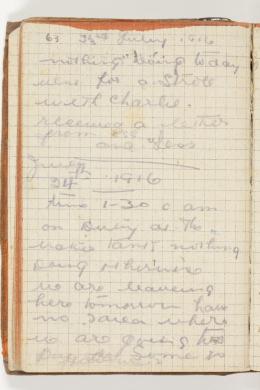 63 23rd July 1916
nothing doing today
went for a stroll
with Charlie.
received a letter
from
and
July
24th 1916
time 1-30 a am
on Duty at the
water tank nothing
doing otherwise
we are leaving
here tomorrow have
no idea where
we are going to
some